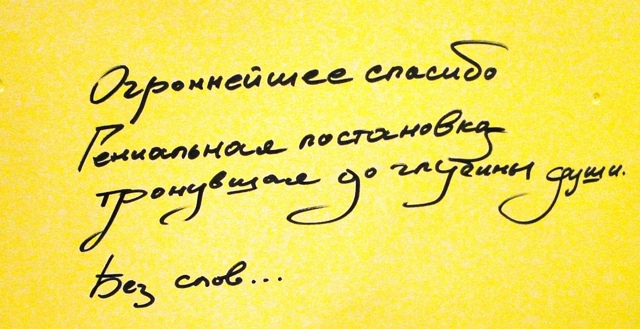 Огроннейшее спасибо
Гениальная постановка
тронувшая до глубины души.
Без слов...